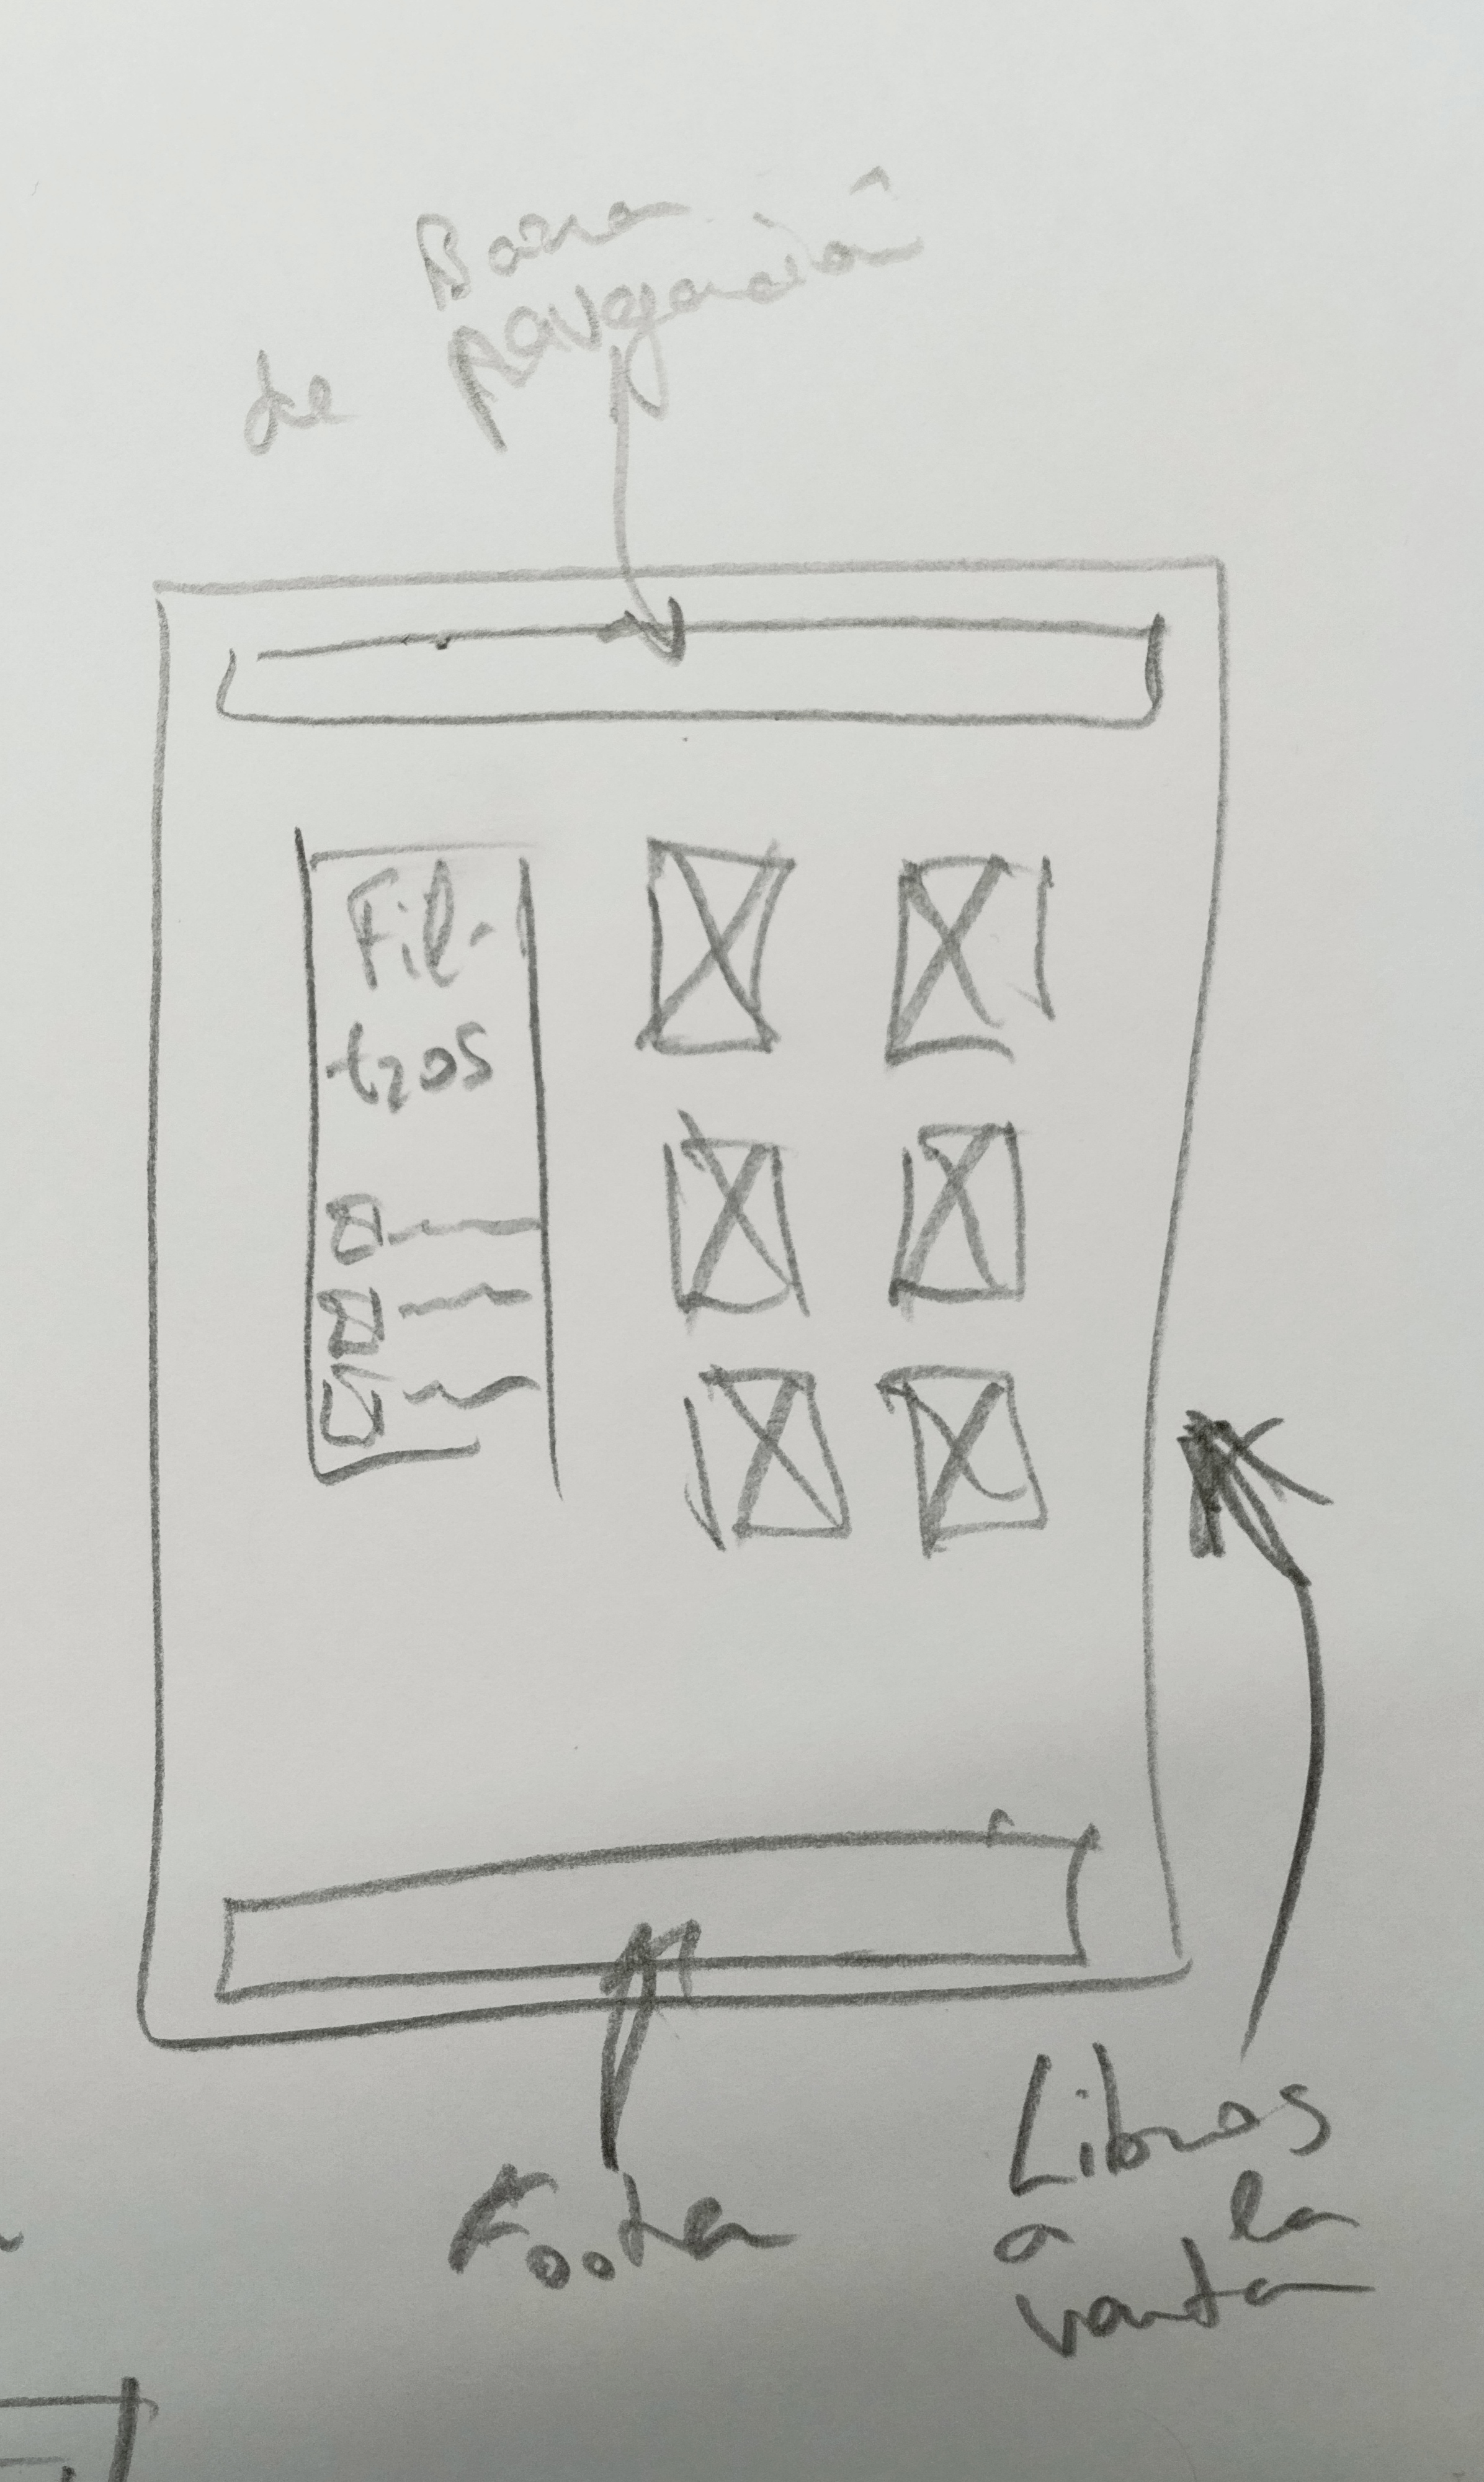 Barra
de navegación
Fil-
tros
Footer
Libros
a la
venta